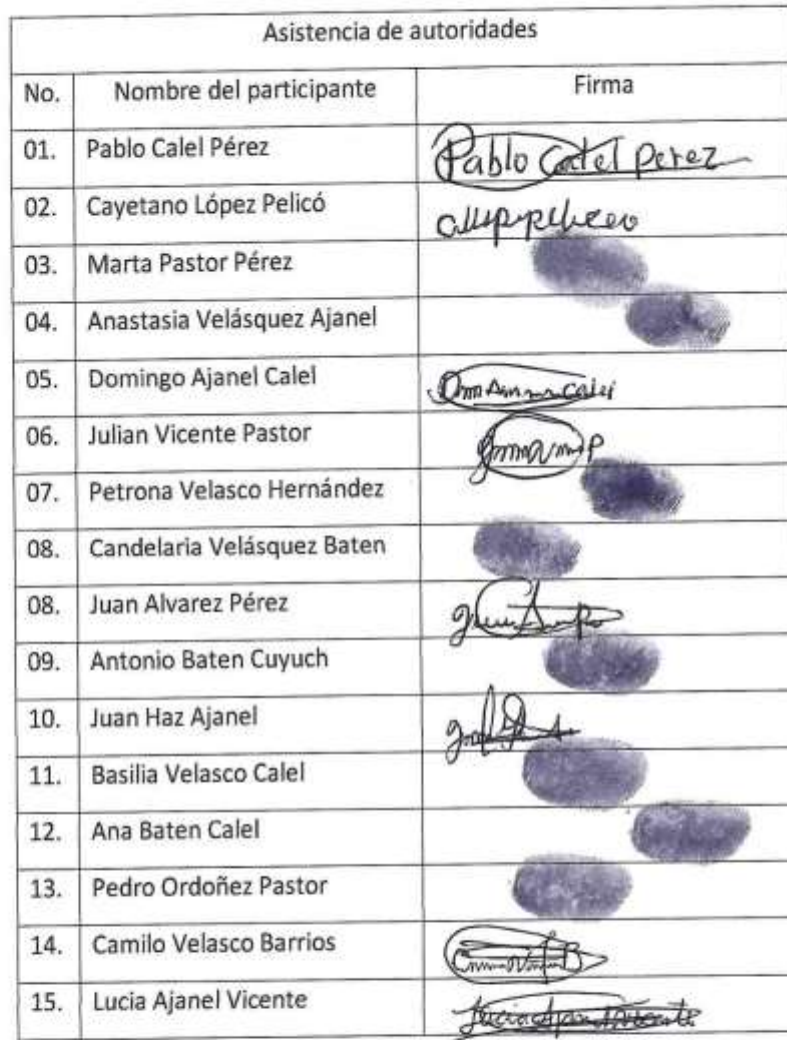 Asistencia de autoridades
No. Nombre del participante Firma
01. Pablo Calel Pérez Pablo Calel Perez
02. Cayetano López Pelicó
03. Marta Pastor Pérez
04. Anastasia Velásquez Ajanel
05. Domingo Ajanel Calel
06. Julian Vicente Pastor
07. Petrona Velasco Hernández
08. Candelaria Velásquez Baten
08. Juan Alvarez Pérez
09. Antonio Baten Cuyuch
10. Juan Haz Ajanel
11. Basilia Velasco Calel
12. Ana Baten Calel
13. Pedro Ordoñez Pastor
14. Camilo Velasco Barrios
15. Lucia Ajanel Vicente